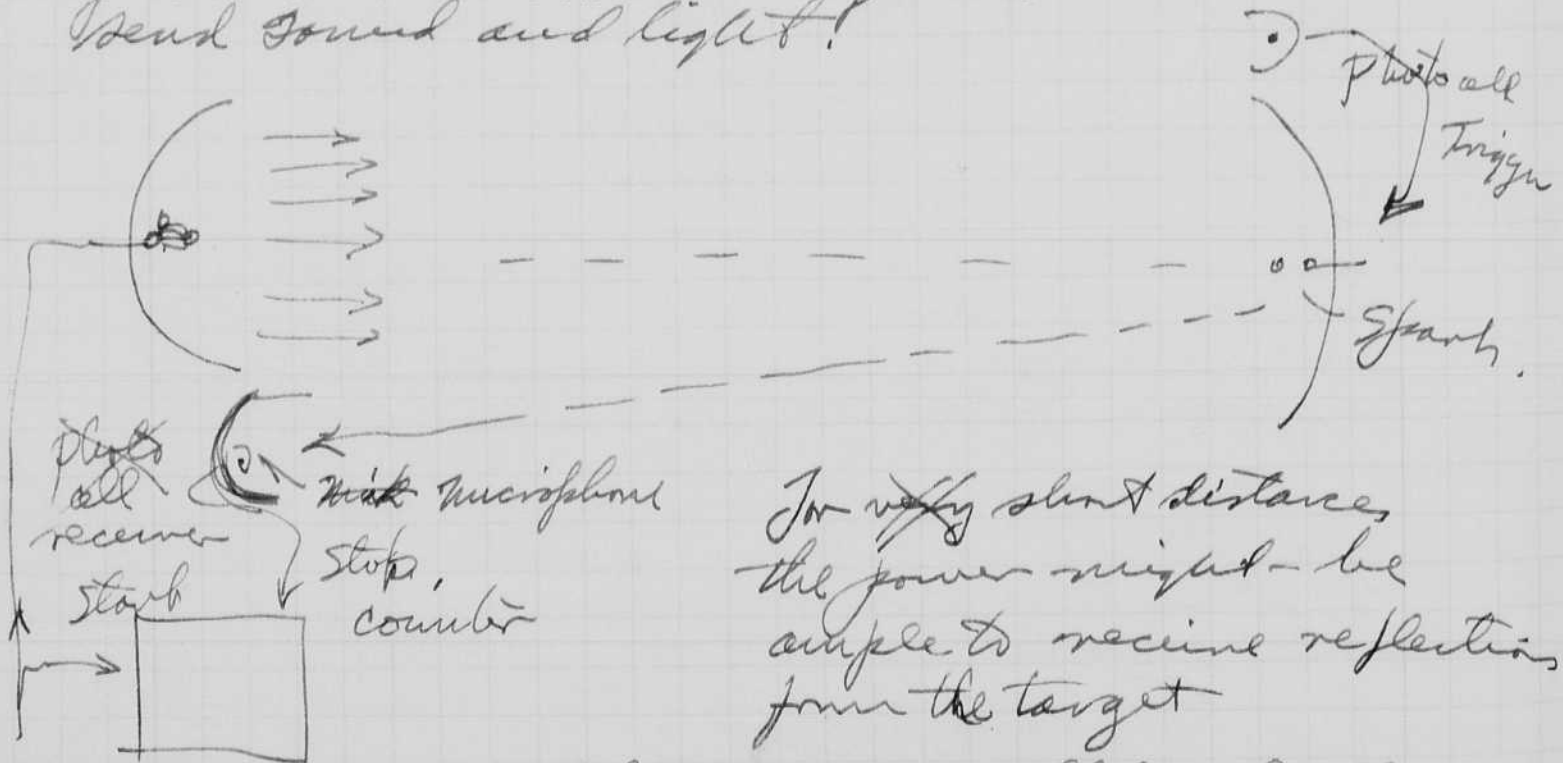 Send sound and light!
Photo cell
Trigger
Spark.
photo
cell
receiver
microphone
Stop,
counter
Start
For very short distances
the power might be
ample to receive reflections
from the target